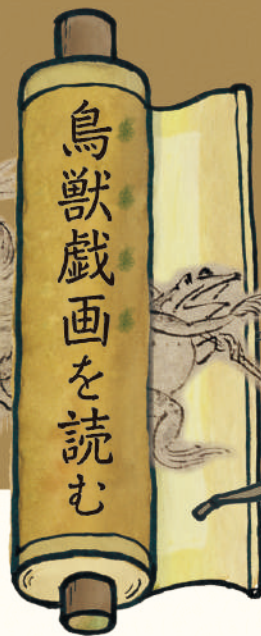 鳥獣戯画を読む